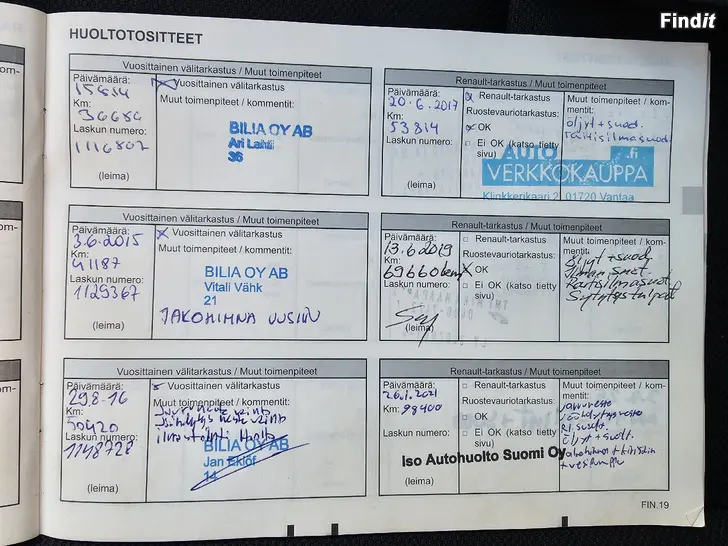 Findit
HUOLTOTOSITTEET
Vuosittainen välitarkastus / Muut toimenpiteet
Päivämäärä:
Km:
36686
Laskun numero:
1116802
(leima)
Vuosittainen välitarkastus
Muut toimenpiteet / kommentit:
BILIA OY AB
Ari Lahti
36
Renault-tarkastus / Muut toimenpiteet
Päivämäärä:
20.6.2017
Km:
53814
Laskun numero:
(leima)
Renault-tarkastus
Ruostevauriotarkastus:
OK
Ei OK (katso tietty
sivu)
Muut toimenpiteet / kom-
mentit:
öljyt + suod.
raitisilmasuod.
AUTO .fi
VERKKOKAUPPA
Klinkkerikaari 2, 01720 Vantaa
Vuosittainen välitarkastus / Muut toimenpiteet
Päivämäärä:
3.6.2015
Km:
41187
Laskun numero:
1129367
(leima)
Vuosittainen välitarkastus
Muut toimenpiteet / kommentit:
BILIA OY AB
Vitali Vähk
21
JAKOHIHNA UUSITTU
Renault-tarkastus / Muut toimenpiteet
Päivämäärä:
13.6.2019
Km:
69660 km
Laskun numero:
(leima)
Renault-tarkastus
Ruostevauriotarkastus:
OK
Ei OK (katso tietty
sivu)
Muut toimenpiteet / kom-
mentit:
Öljyt + suod.
Ilman suod.
Raitisilmasuod.
Sytytystulpat
Vuosittainen välitarkastus / Muut toimenpiteet
Päivämäärä:
29.8-16
Km:
50420
Laskun numero:
1148728
(leima)
Vuosittainen välitarkastus
Muut toimenpiteet / kommentit:
jarruneste vaihto
jäähdytys neste vaihto
ilmastointi huolto
BILIA OY AB
Jan Eklöf
14
Renault-tarkastus / Muut toimenpiteet
Päivämäärä:
26.1.2021
Km: 98400
Laskun numero:
(leima)
Renault-tarkastus
Ruostevauriotarkastus:
OK
Ei OK (katso tietty
sivu)
Muut toimenpiteet / kom-
mentit:
jarruneste
jäähdytysneste
RI. suod.
öljyt + suod.
jakohihna + kiristin
+ vesipumppu
Iso Autohuolto Suomi Oy
FIN.19